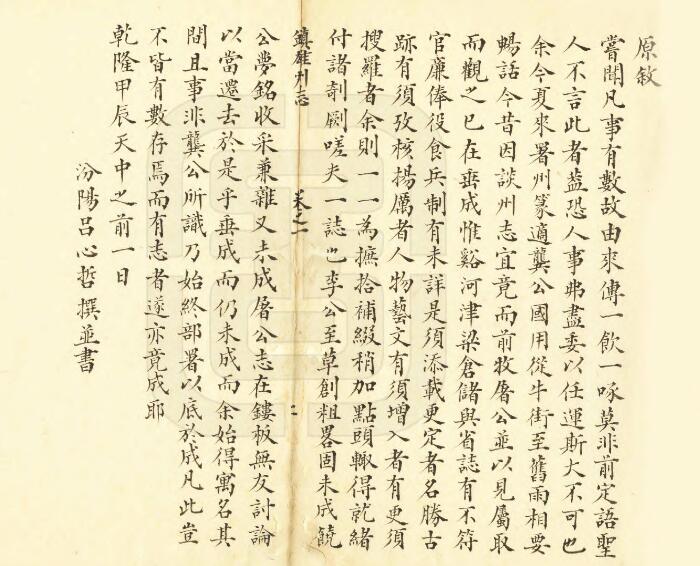 原敘
嘗聞凡事有數故由來傳一飲一啄莫非前定語聖
人不言此者葢恐人事弗盡委以任運斯大不可也
余今夏來署州篆適龔公國用從牛街至舊雨相要
暢話今昔因談州志宜竟而前牧屠公並以見屬取
而觀之已在垂成惟谿河津梁倉儲與省誌有不符
官廉俸役食兵制有未詳是須添載更定者名勝古
跡有須攷核揚厲者人物藝文有須增入者有更須
搜羅者余則一一為摭拾補綴稍加點頭輙得就緒
付諸剞劂嗟夫一誌也李公至草創粗畧固未成饒
鎮雄州志 卷之一 二
公夢銘收采兼雜又未成屠公志在鏤板無友討論
以當遷去於是乎垂成而仍未成而余始得寓名其
間且事非龔公所識乃始終部署以底於成凡此豈
不皆有數存焉而有志者遂亦竟成耶
乾隆甲辰天中之前一日
汾陽呂心哲撰並書